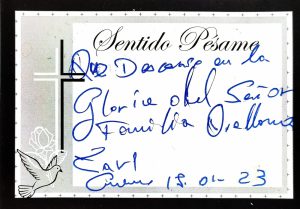 Sentido Pésame
Que Descanse en la
Gloria del Señor
Familia
15.01-23